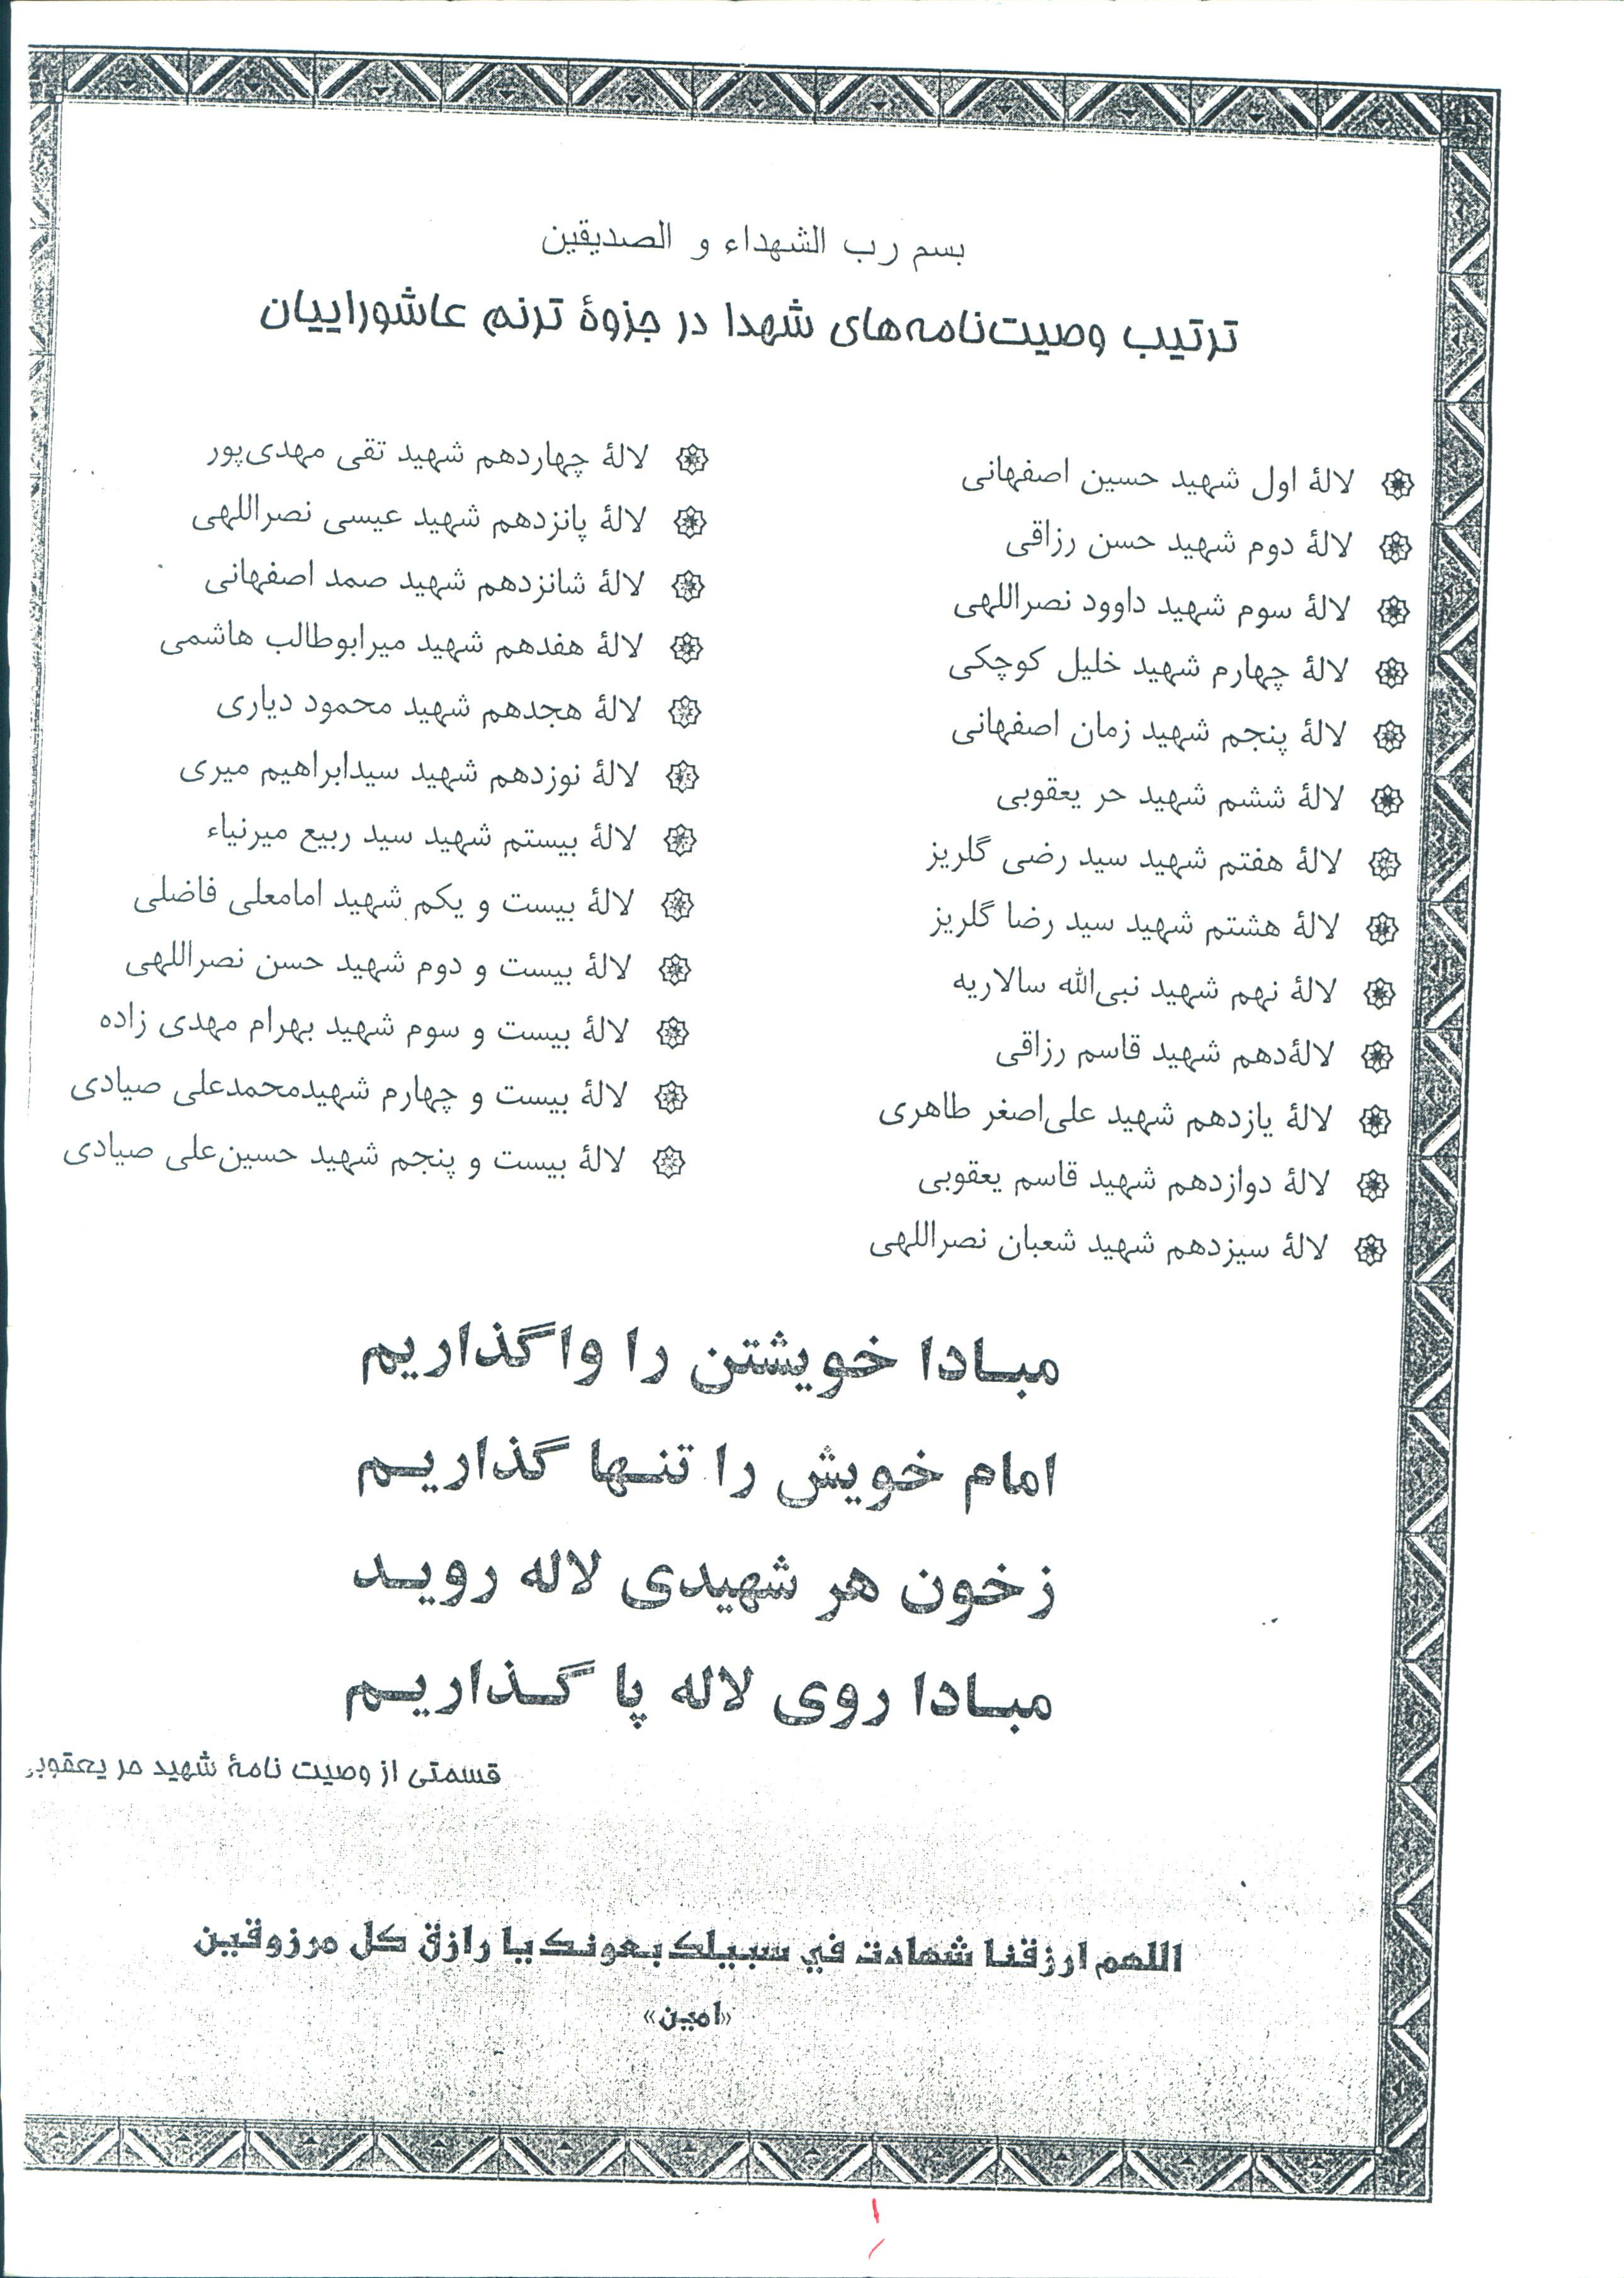 بسم رب الشهداء و الصدیقین
ترتیب وصیت‌نامه‌های شهدا در جزوهٔ ترنم عاشوراییان
لالهٔ اول شهید حسین اصفهانی
لالهٔ دوم شهید حسن رزاقی
لالهٔ سوم شهید داوود نصراللهی
لالهٔ چهارم شهید خلیل کوچکی
لالهٔ پنجم شهید زمان اصفهانی
لالهٔ ششم شهید حر یعقوبی
لالهٔ هفتم شهید سید رضی گلریز
لالهٔ هشتم شهید سید رضا گلریز
لالهٔ نهم شهید نبی‌الله سالاریه
لالهٔ‌دهم شهید قاسم رزاقی
لالهٔ یازدهم شهید علی‌اصغر طاهری
لالهٔ دوازدهم شهید قاسم یعقوبی
لالهٔ سیزدهم شهید شعبان نصراللهی
لالهٔ چهاردهم شهید تقی مهدی‌پور
لالهٔ پانزدهم شهید عیسی نصراللهی
لالهٔ شانزدهم شهید صمد اصفهانی
لالهٔ هفدهم شهید میرابوطالب هاشمی
لالهٔ هجدهم شهید محمود دیاری
لالهٔ نوزدهم شهید سیدابراهیم میری
لالهٔ بیستم شهید سید ربیع میرنیاء
لالهٔ بیست و یکم شهید امامعلی فاضلی
لالهٔ بیست و دوم شهید حسن نصراللهی
لالهٔ بیست و سوم شهید بهرام مهدی زاده
لالهٔ بیست و چهارم شهیدمحمدعلی صیادی
لالهٔ بیست و پنجم شهید حسین‌علی صیادی
مبـادا خویشتن را واگذاریم
امام خویش را تنـها گذاریـم
زخون هر شهیدی لاله رویـد
مبـادا روی لاله پا گـذاریـم
قسمتی از وصیت نامهٔ شهید حر یعقوبی
اللهم ارزقنا شهادت في سبیلک بعونک یا رازق کل مرزوقین
«امین»
۱